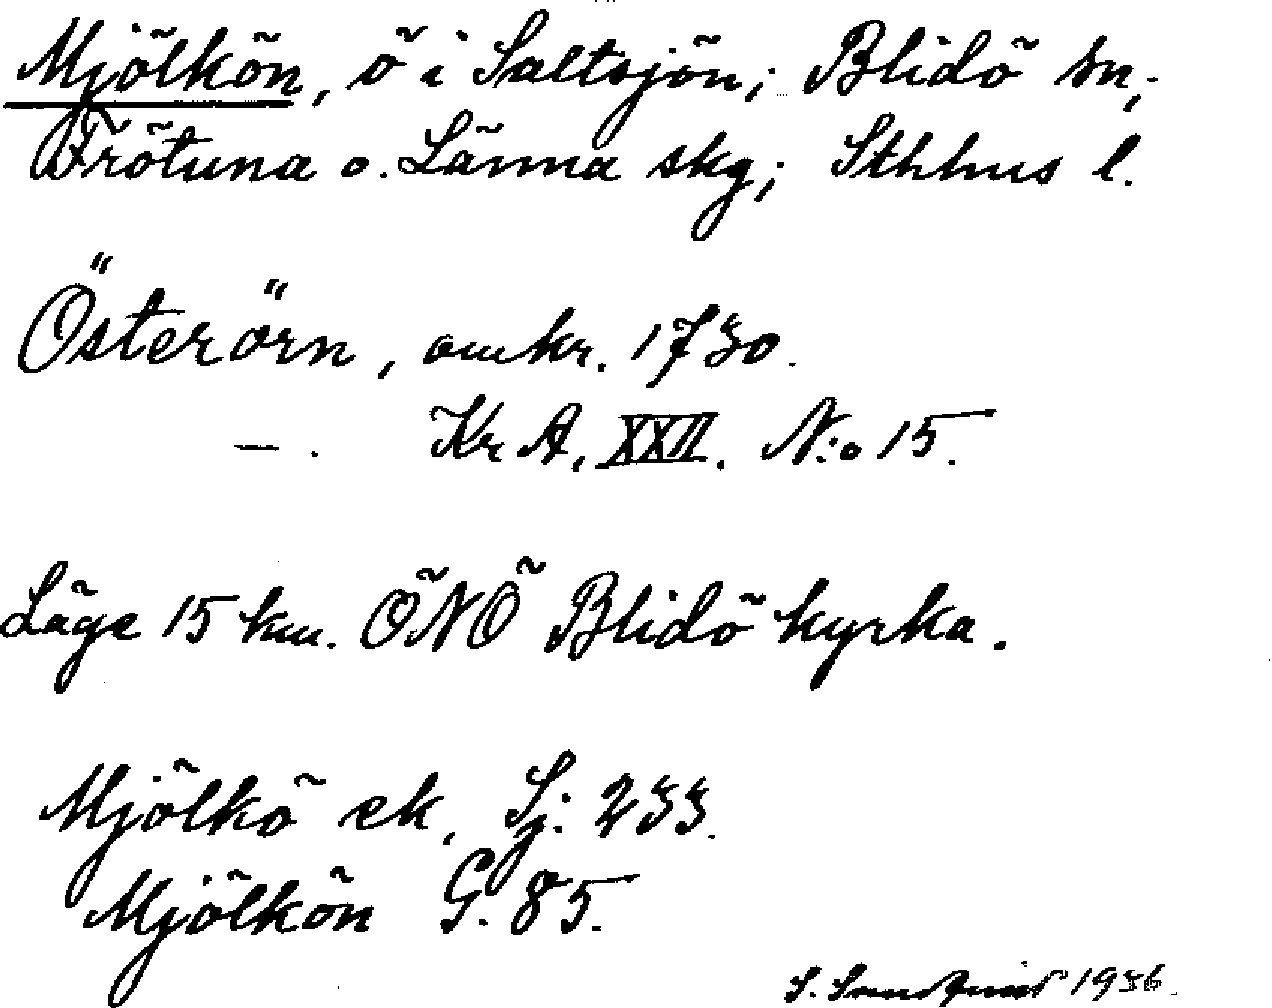 Mjölkön, ö i Saltsjön; Blidö sn,
Frötuna o. Länna skg; Sthhus l.
Österörn, omkr. 1730.
— . Kr A, XXII. N:o 15.
Läge 15 km. ÖNÖ Blidö kyrka.
Mjölkö ek. Sj: 233.
Mjölkön G. 85.
S. 1936